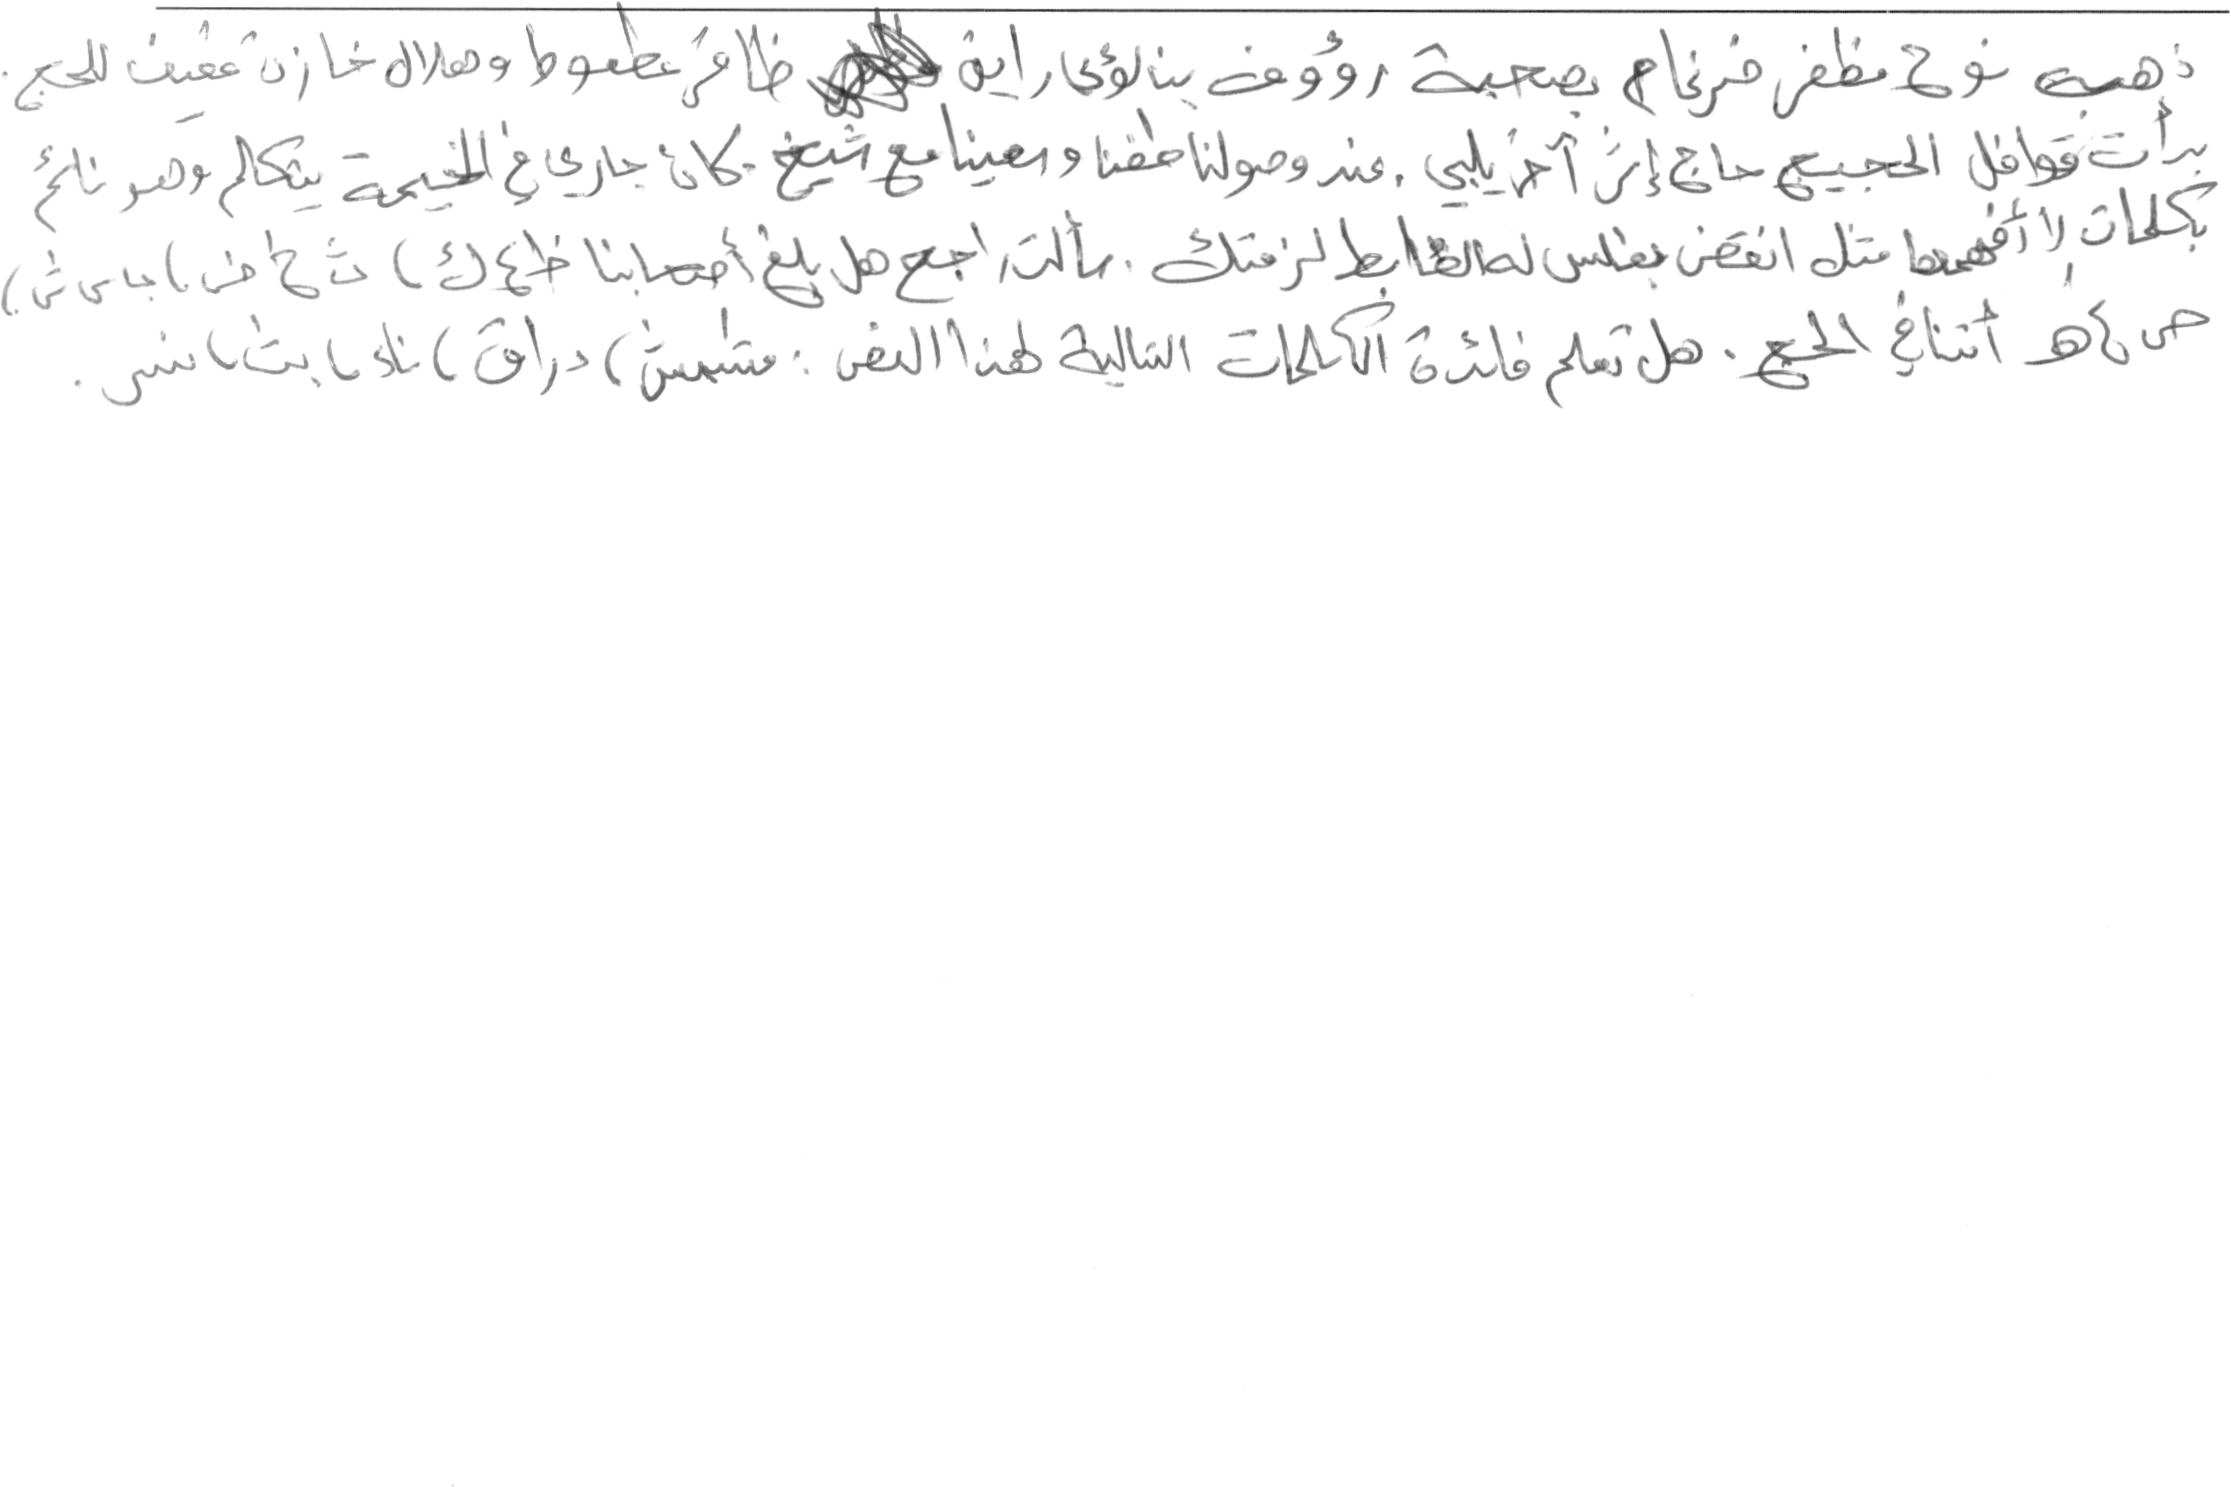 ذهب نوح مظفر ضرغام بصحبة رؤوف بن لؤي رايق ظافر عطعوط وهلال خازن عفيف للحج.
بدأت قوافل الحجيج حاج إثر آخر يلبي. عند وصولنا طفنا وسعينا مع شيخ. كان جاري في الخيمة يتكلم وهو نائم
بكلمات لا أفهمها مثل انقض بغلس لظالضابط لزمتك. سألت راجح هل بلغ أصحابنا خ ع ك) ث ح ض) جا س ش)
ص ع ه أثناء الحج. هل تعلم فائدة الكلمات التالية لهذا النص: مشمش) دراق) ناد) بث) نس.